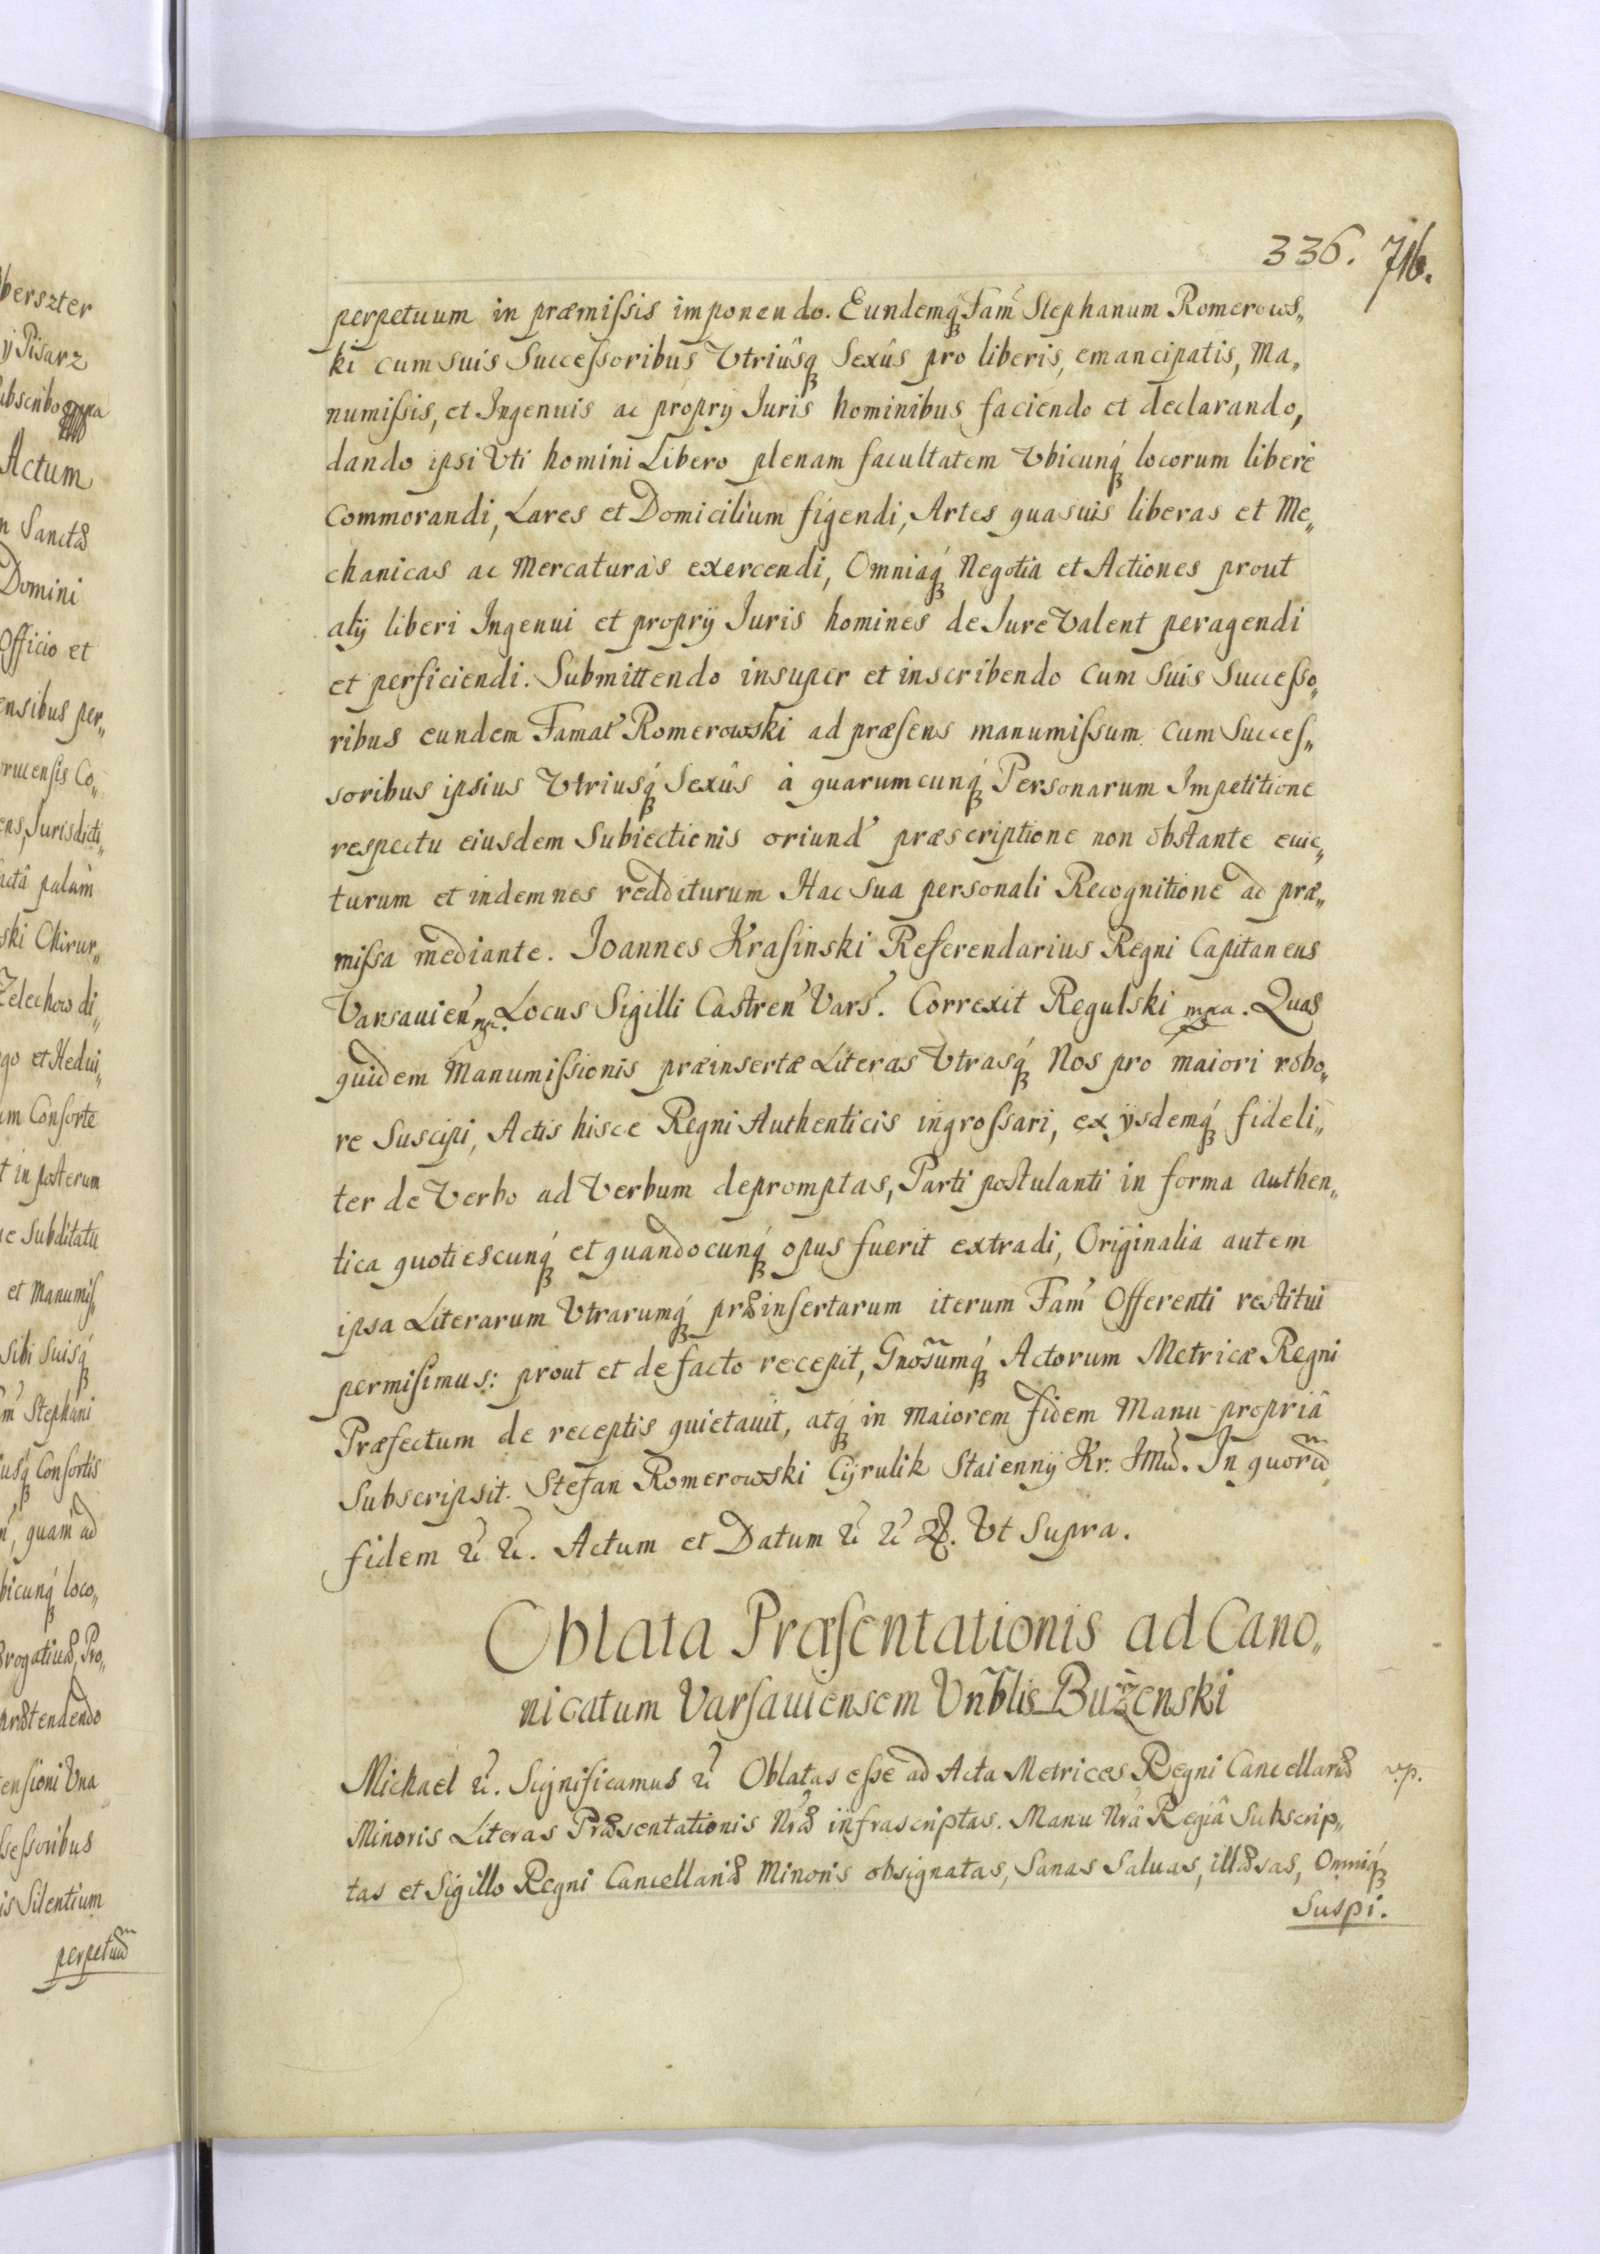 berszter
ÿ Pisarz
ubscribo mppa
Actum
n Sanctæ
Domini
Officio et
ensibus per„
Co„
ens, Jurisdicti„
palam
ski Chirur„
Zelechow di„
go et Hedui„
um Consorte
t in posterum
ue Subditatu
et Manumiſ„
Sibi Suisq́
m̉ Stephani
iusq́ Consortis
quam ad
bicunq́ loco„
rogatiuæ, Pro„
prætendendo
tensioni Una
sessoribus
is Silentium
perpetuũ
336. 716.
perpetuum in præmiſsis imponendo. Eundemq́ Fam̉ Stephanum Romerows„
ki cum suis Succeſsoribus Vtriûsq́ Sexûs pro liberis, emancipatis, Ma„
numiſsis, et Ingenuis ac proprÿ Juris hominibus faciendo et declarando,
dando ipsi Vti homini Libero plenam facultatem Vbicunq́ locorum liberè
Commorandi, Lares et Domicilium figendi, Artes quasuis liberas et Me„
chanicas ac Mercaturas exercendi, Omniaq́ Negotia et Actiones prout
alÿ liberi Ingenui et proprÿ Juris homines de Jure Valent peragendi
et perficiendi. Submittendo insuper et inscribendo cum Suis Succeſso„
ribus eundem Famat̉ Romerowski ad præsens manumiſsum cum Succeſ„
soribus ipsius Vtriusq́ Sexûs à quarumcunq́ Personarum Impetitione
respectu eiusdem Subiectionis oriund̉ præscriptione non obstante euic„
turum et indemnes redditurum Hac Sua personali Recognitione ad præ„
miſsa mediante. Joannes Kraſinski Referendarius Regni Capitaneus
Varsauien̉ mp. Locus Sigilli Castren̉ Vars̉. Correxit Regulski mpa. Quas
quidem Manumiſsionis præinsertæ Literas Vtrasq́ Nos pro maiori robo„
re Suscipi, Actis hisce Regni Authenticis ingroſsari, ex ÿsdemq́ fideli„
ter de Verbo ad Verbum depromptas, Parti postulanti in forma authen„
tica quotiescunq́ et quandocunq́ opus fuerit extradi, Originalia autem
ipsa Literarum Vtrarumq́ præinsertarum iterum Fam̉ Offerenti restitui
permiſimus: prout et de facto recepit, Gnosũmq́ Actorum Metricæ Regni
Præfectum de receptis quietauit, atq́ in Maiorem fidem Manu propriâ
Subscripsit. Stefan Romerowski Cÿrulik Staiennÿ Kr. JMci. In quorũ
fidem &c &c. Actum et Datum &c &c &c. Vt Supra.
Oblata Præſentationis ad Cano„
nicatum Varſauiensem Vnb̃lis Buzenski
Michael &c. Significamus &c Oblatas eſse ad Acta Metrices Regni Cancellariæ
v.p.
Minoris Literas Præsentationis Nr̃æ infrascriptas. Manu Nr̃â Regiâ Subscrip„
tas et Sigillo Regni Cancellariæ Minoris obsignatas, Sanas Saluas, illæsas, Omniq́
Suspi.